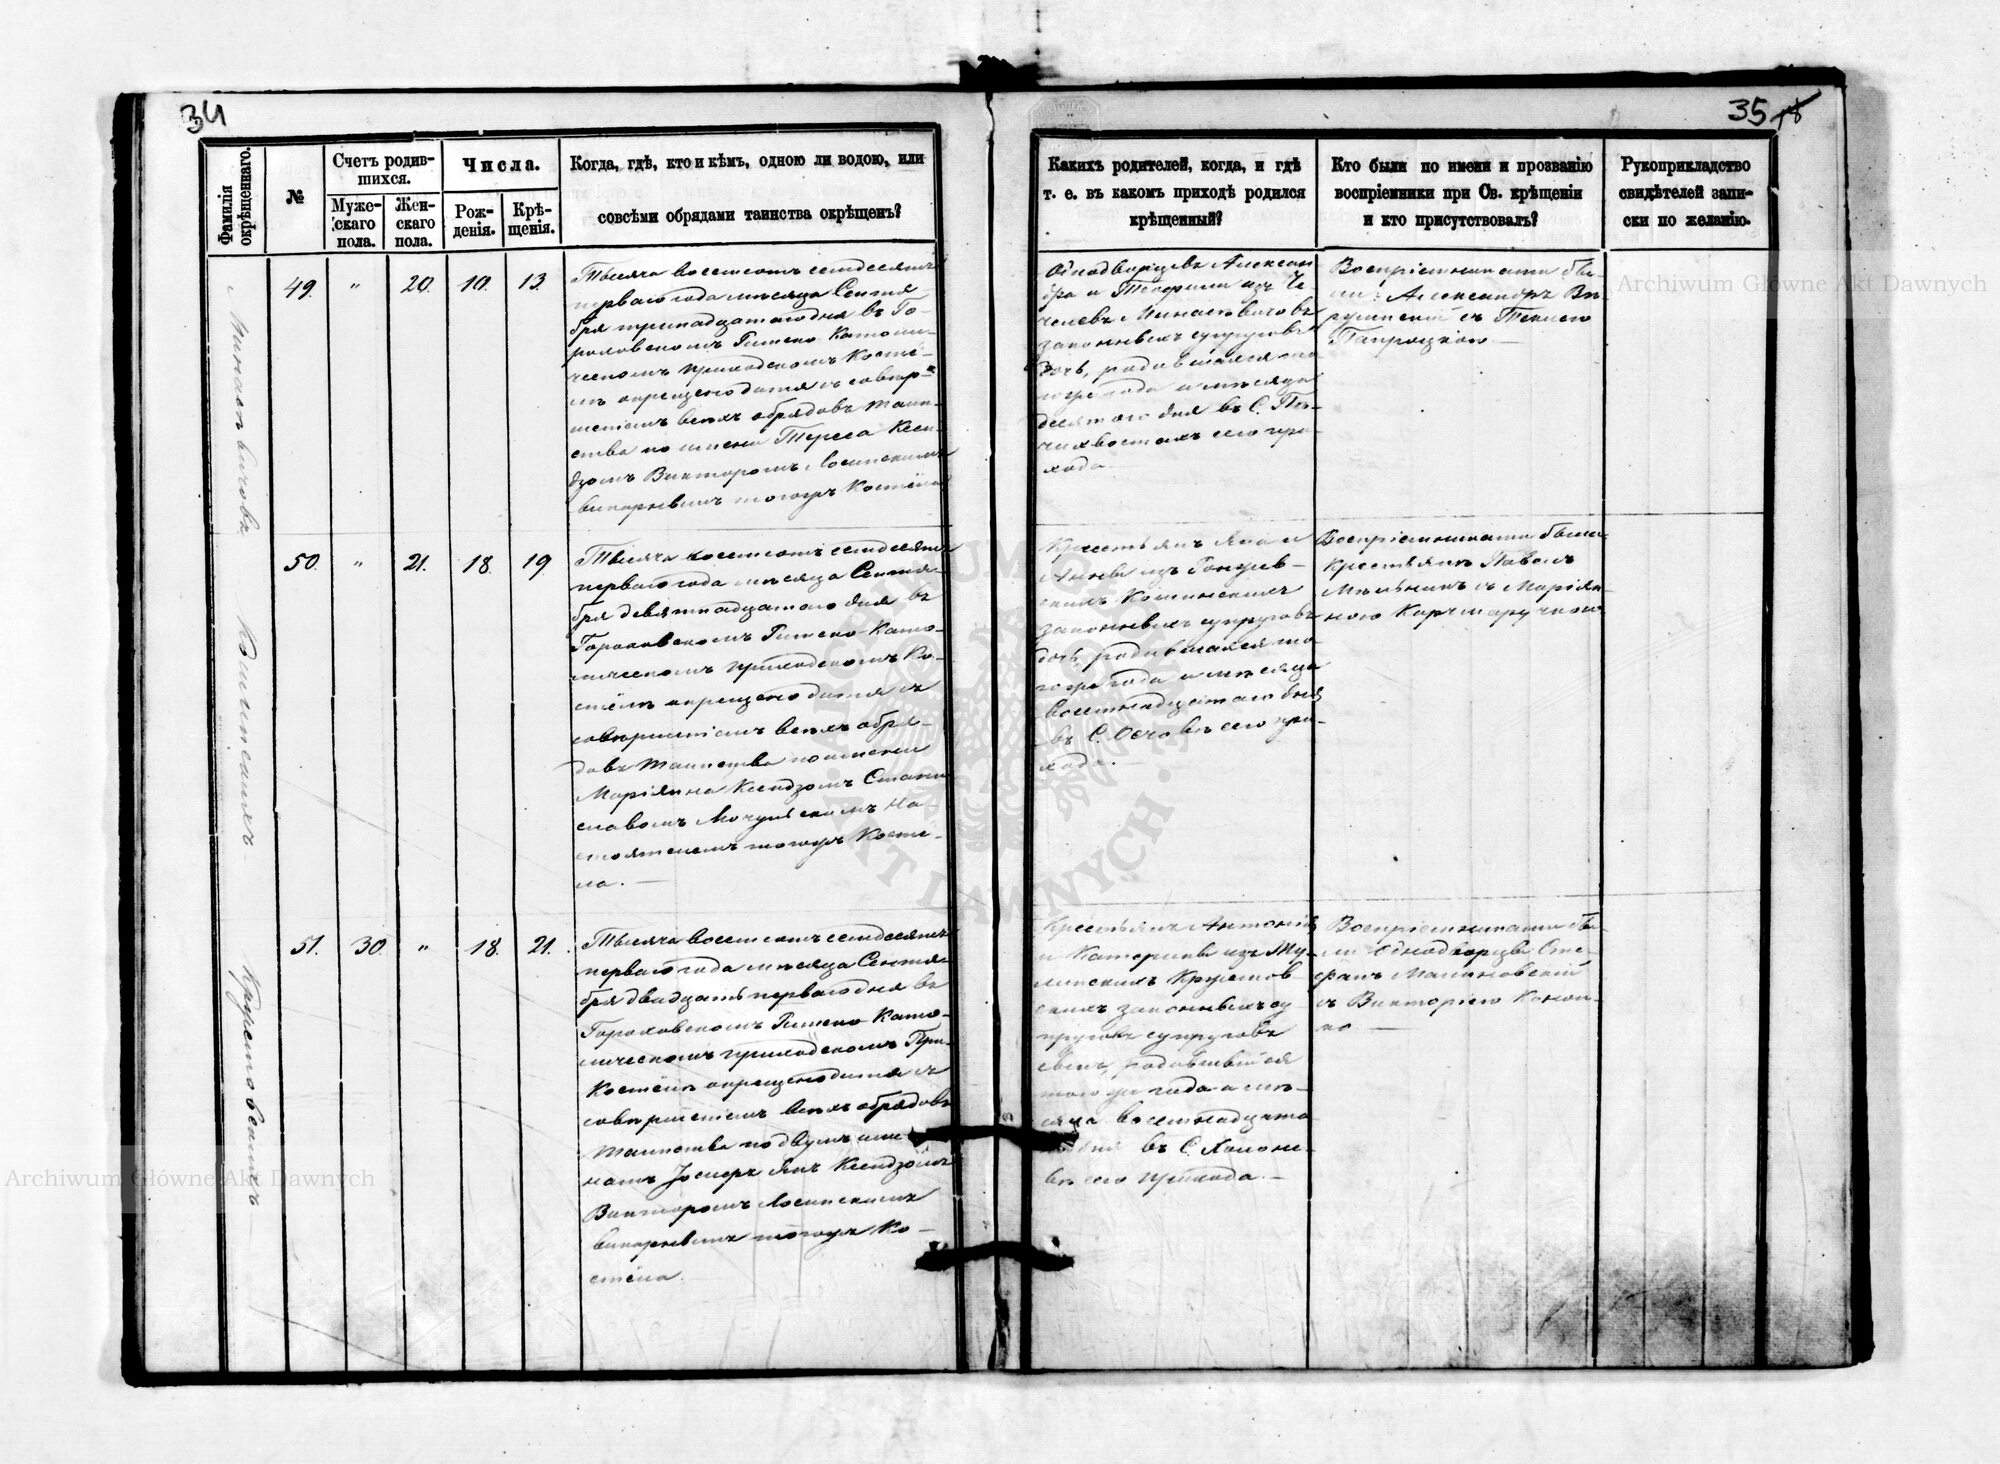 34
35
Фамилія окрѣщеннаго.
№
Счетъ родив-
шихся.
Муже-
скаго
пола.
Жен-
скаго
пола.
Числа.
Рож-
денія.
Крѣ-
щенія.
Когда, гдѣ, кто и кѣмъ, одною ли водою, или
совсѣми обрядами таинства окрѣщенъ?
Какихъ родителей, когда, и гдѣ
т. е. въ какомъ приходѣ родился
крѣщенный?
Кто были по имени и прозванію
воспріемники при Св. крѣщеніи
и кто присутствовалъ?
Рукоприкладство
свидѣтелей запи-
ски по желанію.
49. " 20. 10. 13.
Тысяча восемсотъ семдесятъ
перваго года мѣсяца Сентя-
бря тринадцатого дня въ Го-
роховскомъ Римско Католи-
ческомъ приходскомъ Костё-
лѣ окрещено дитя съ совер-
шеніемъ всехъ обрядовъ таин-
ства по имени Тереса Ксен-
дзомъ Викторомъ
викарнымъ тогожъ Костёла
Однодворцевъ Алексан
дра и Теофили изъ
законныхъ супруговъ
дочь, родившаяся то-
гоже года и мѣсяца
десятого дня въ С.
сего при-
хода.
Воспріемниками бы-
ли: Александръ
съ
50. " 21. 18. 19.
Тысяча восемсотъ семдесятъ
перваго года мѣсяца Сентя-
бря девятнадцатого дня въ
Гороховскомъ Римско-Като-
лическомъ приходскомъ Ко-
стёлѣ окрещено дитя съ
совершеніемъ всехъ обря-
довъ таинства по имени
Маріянна Ксендзомъ Стани
славомъ на-
стоятелемъ тогожъ Костё-
ла. —
Крестьянъ Яна и
Анны изъ
законныхъ супруговъ
дочь, родившаяся то-
гоже года и мѣсяца
восемнадцатого дня
въ С. сего при-
хода. —
Воспріемниками были
Крестьяне Павелъ
Мельникъ съ Маріян-
ною
51. 30. " 18. 21.
Тысяча восемсотъ семдесятъ
перваго года мѣсяца Сентя-
бря двадцать перваго дня въ
Гороховскомъ Римско Като-
лическомъ приходскомъ При
Костёлѣ окрещено дитя съ
совершеніемъ всехъ обрядовъ
таинства по двумъ име-
намъ Янъ Ксендзомъ
Викторомъ
викарнымъ тогожъ Ко-
стёла.
Крестьянъ Антонія
и Катерины изъ
законныхъ су
пруговъ супруговъ
сынъ, родившійся
тогоже года и мѣ-
сяца восемнадцато
дня въ С.
сего прихода. —
Воспріемниками бы-
ли Однодворцы Сте-
фанъ Малиновскій
съ Викторіею
Archiwum Główne Akt Dawnych
Archiwum Główne Akt Dawnych
ARCHIWUM GŁÓWNE AKT DAWNYCH